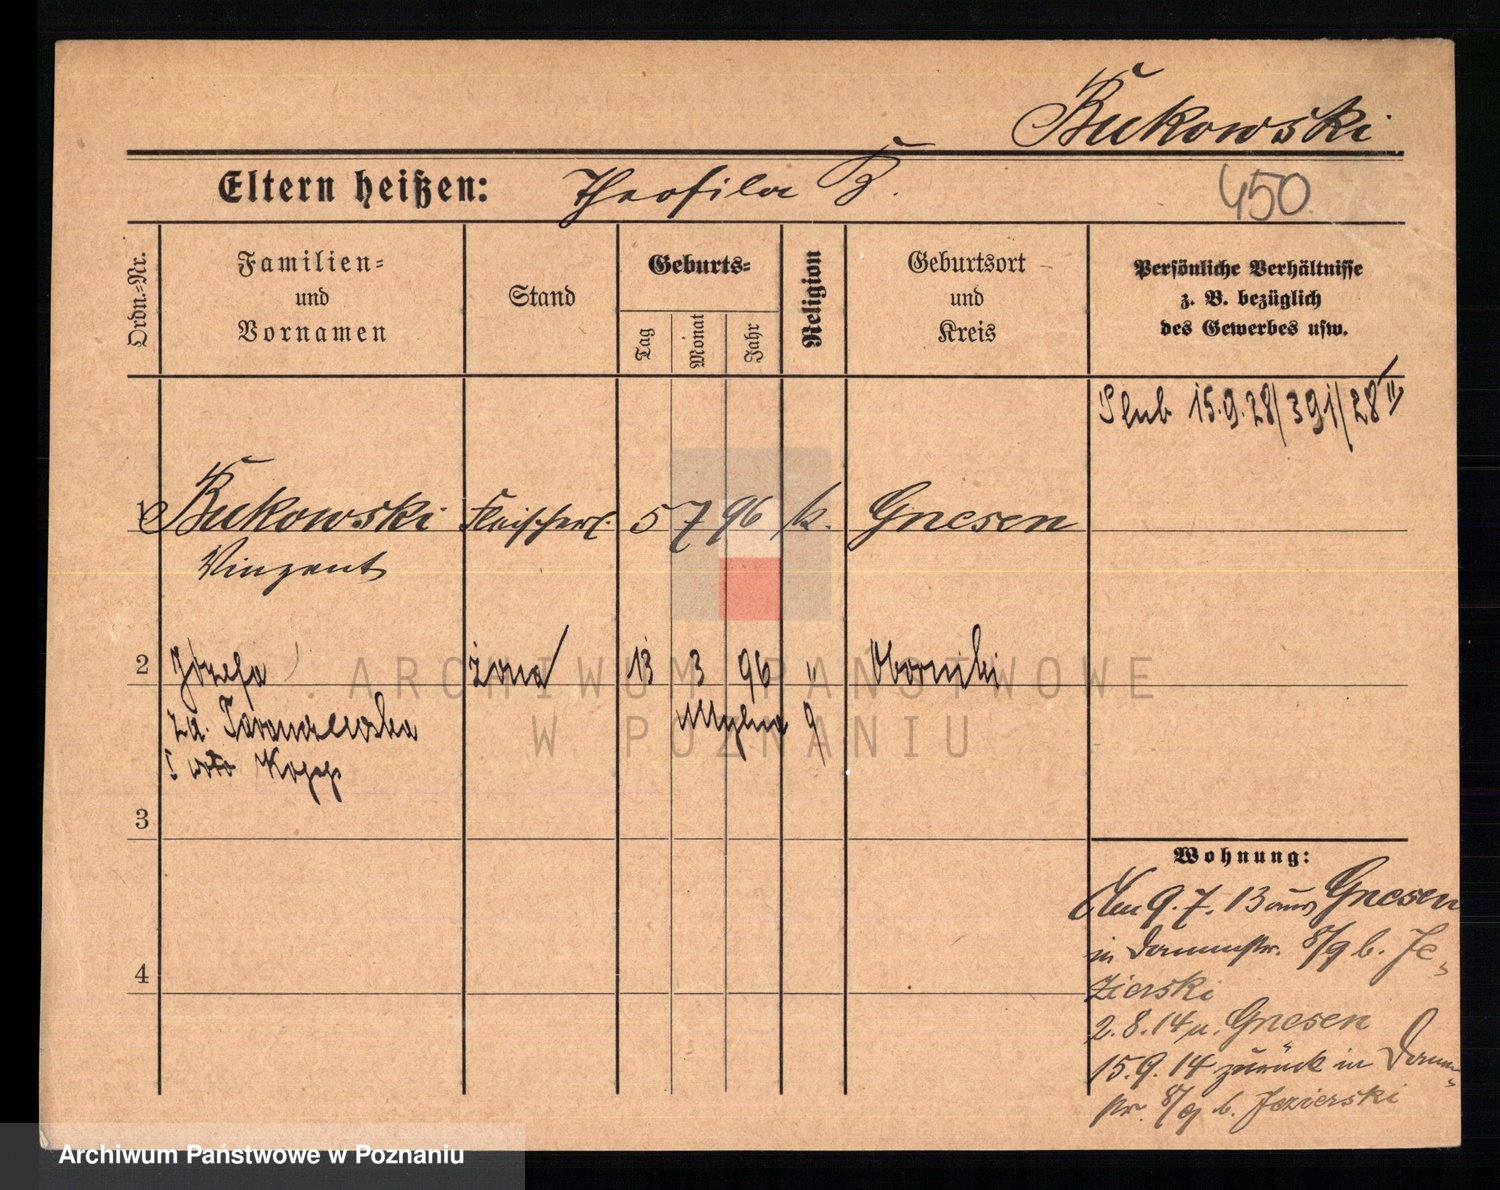 Bukowski
Eltern heißen: Theofila B.
450
Ordn.-Nr.
Familien-
und
Vornamen
Stand
Geburts-
Tag
Monat
Jahr
Religion
Geburtsort
und
Kreis
Persönliche Verhältnisse
z. B. bezüglich
des Gewerbes usw.
Slub 15.9.28/391/28 II
1 Bukowski Fleischerl. 5 7 96 k. Gnesen
Vinzent
2 Józefa żona 13 3 96 " Oborniki
za.
I voto Kopp
3
4
Wohnung:
Am 9.7.13 aus Gnesen
in Dammstr. 8/9 b. Je-
zierski
2.8.14 n. Gnesen
15.9.14 zurück in Damm-
str. 8/9 b. Jezierski
ARCHIWUM PAŃSTWOWE
W POZNANIU
Archiwum Państwowe w Poznaniu